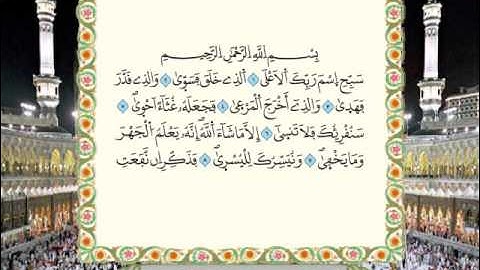 بِسْمِ اللَّهِ الرَّحْمَٰنِ الرَّحِيمِ
سَبِّحِ اسْمَ رَبِّكَ الْأَعْلَى ۝١ الَّذِي خَلَقَ فَسَوَّىٰ ۝٢ وَالَّذِي قَدَّرَ
فَهَدَىٰ ۝٣ وَالَّذِي أَخْرَجَ الْمَرْعَىٰ ۝٤ فَجَعَلَهُ غُثَاءً أَحْوَىٰ ۝٥
سَنُقْرِئُكَ فَلَا تَنْسَىٰ ۝٦ إِلَّا مَا شَاءَ اللَّهُ إِنَّهُ يَعْلَمُ الْجَهْرَ
وَمَا يَخْفَىٰ ۝٧ وَنُيَسِّرُكَ لِلْيُسْرَىٰ ۝٨ فَذَكِّرْ إِنْ نَفَعَتِ